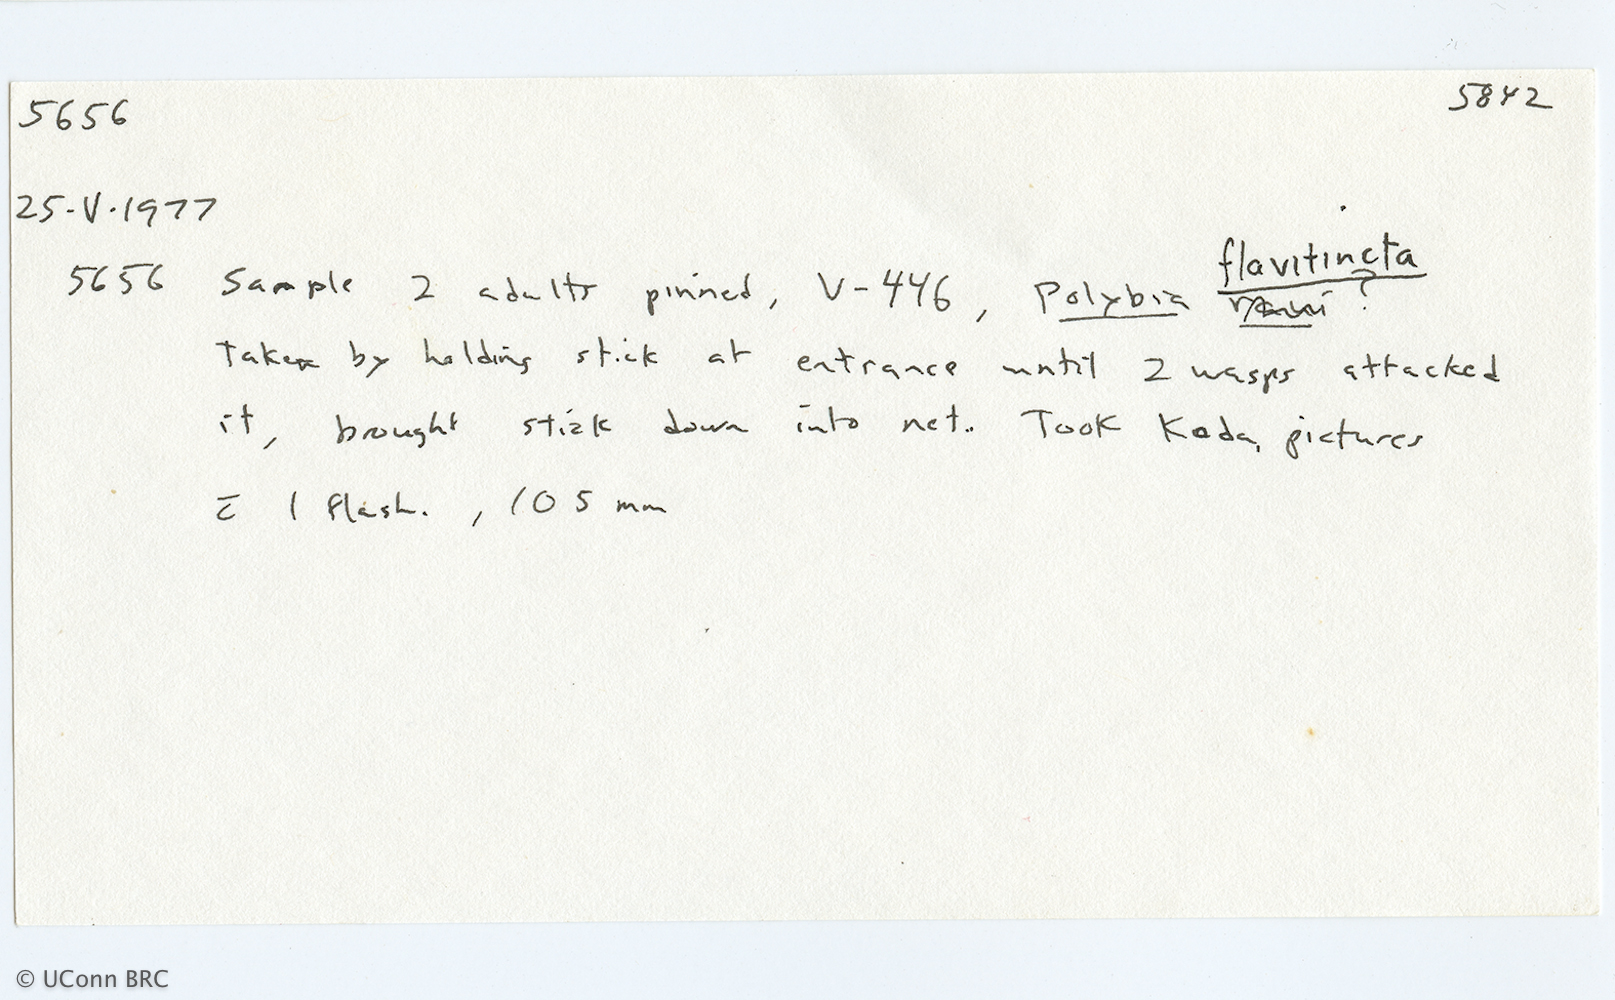 5656
5842
25-V-1977
flavitincta
5656 Sample 2 adults pinned, V-446, Polybia ?
Taken by holding stick at entrance until 2 wasps attacked
it, brought stick down into net. Took Koda, pictures
c̄ 1 flash. , 105 mm
© UConn BRC